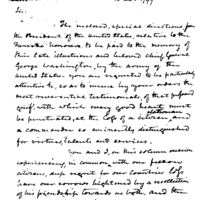 Sir:
The inclosed, special directions for
the President of the United States, relative to the
Funeral honours, to be paid to the memory of
the late illustrious and beloved chief,
George Washington, by the army of the
United States. you are requested to be particularly
attentive to, so as to ensure by your orders the
most unequivocal testimonial, of that profound
grief, with which every good heart must
be penetrated, at the loss of a citizen and
a commander so eminently distinguished
for virtue, talents and services.
You and I, on this solemn occasion
experiencing, in common, with our fellow
citizens, deep regret for our Countries loss
have our sorrows heightened by a recollection
of his friendship towards us both, and the